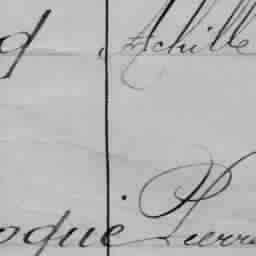 d Achille
oqué Pierre